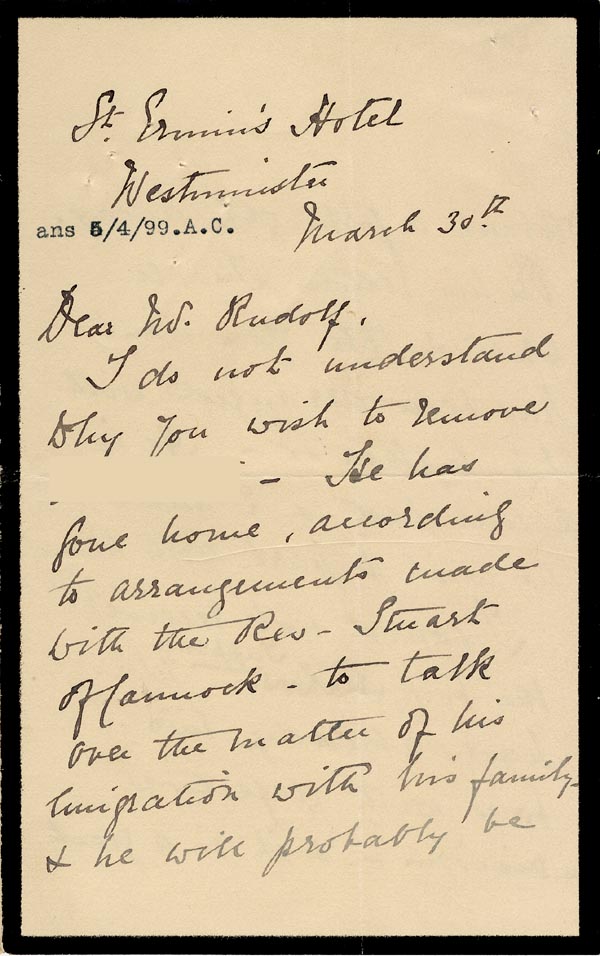 St. Ermin's Hotel
Westminster
ans 5/4/99.A.C.
March 30th
Dear Mr. Rudolf,
I do not understand
Why you wish to remove
- He has
gone home, according
to arrangements made
with the Rev - Stuart
of Cannock - to talk
over the matter of his
Emigration with his family -
& he will probably be